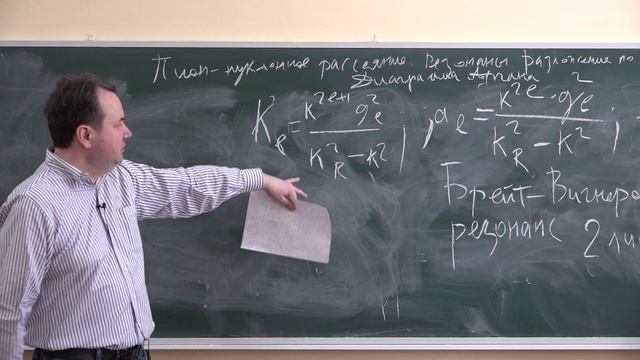 Пион-нуклонное рассеяние. Резонансы. Разложение по
Диаграмма Аргана
K_ℓ = k^{2ℓ+1} g_ℓ^2 / (k_R^2 - k^2) ; a_ℓ = k^{2ℓ} · g_ℓ^2 / (k_R^2 - k^2) ;
Брейт-Вигнера
резонанс 2